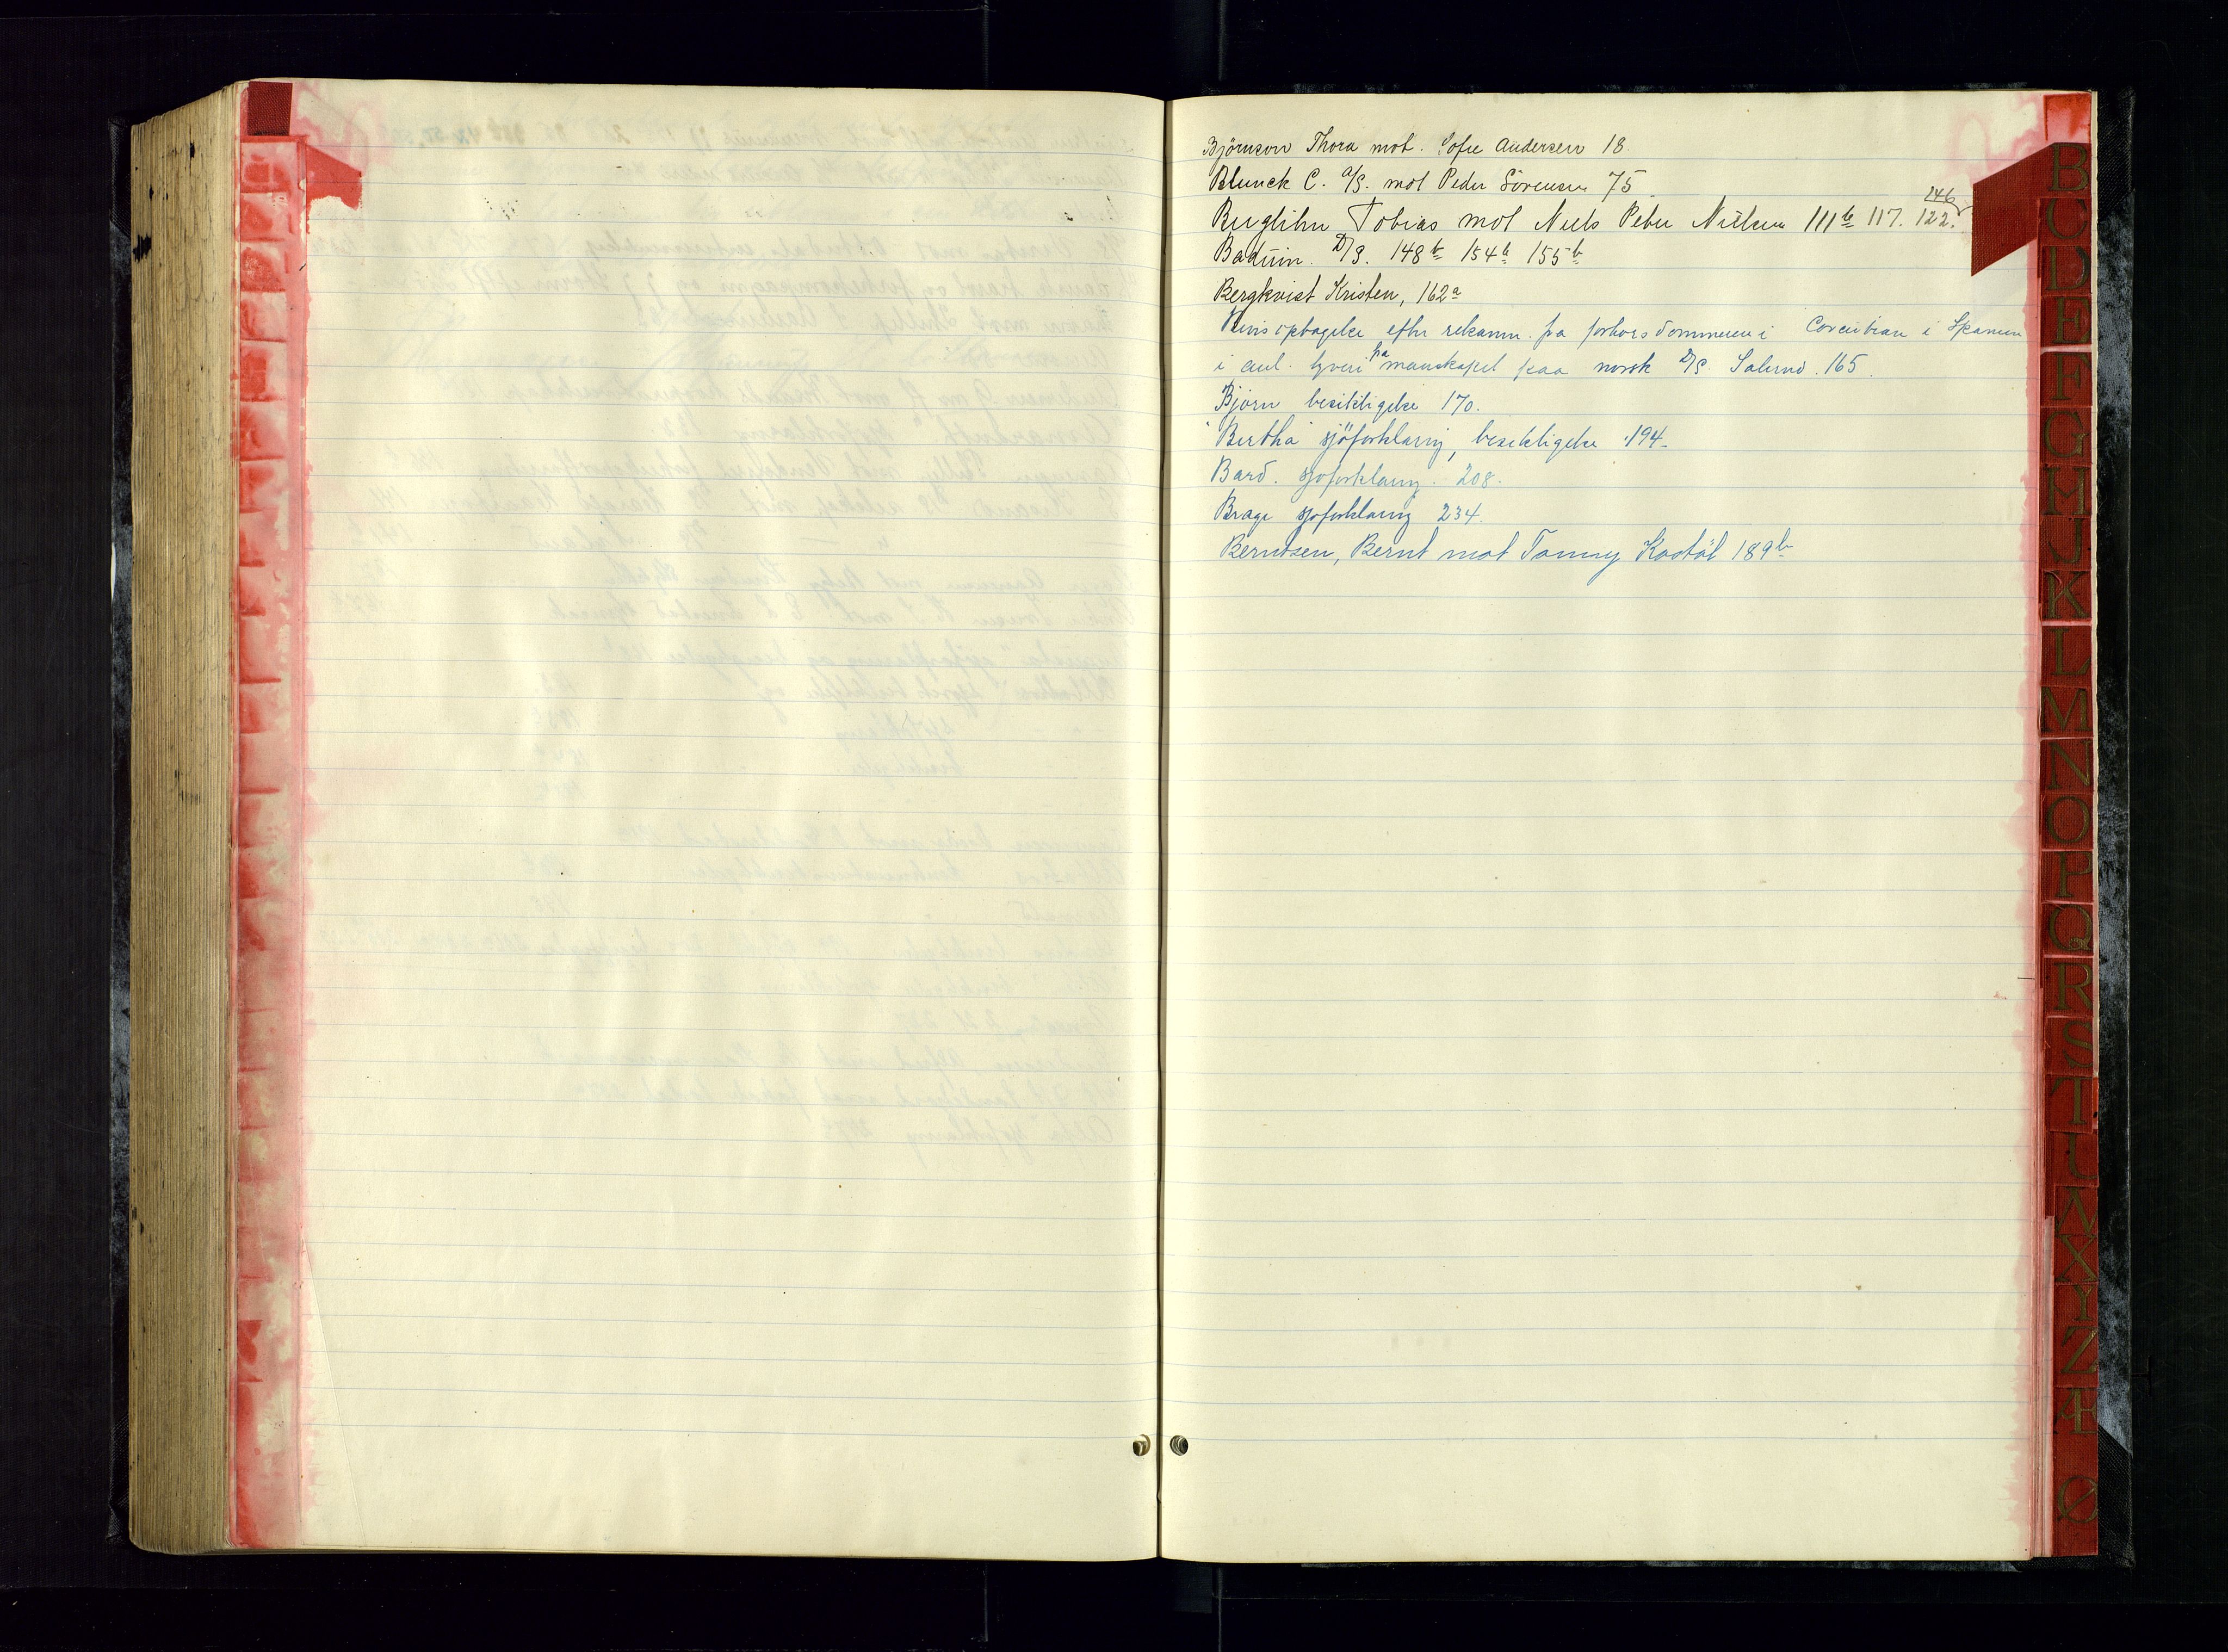 Björnson Thora mot. Sofie Andersen 18.
Blunck C. A/S. mot Peder Sörensen 75.
146
Tobias mot Niels Peter Nielsen 111b 117. 122.
Baduin. D/S. 148b 154b 155b
Bergkvist Kristen, 162a
Bevis optagelse efter rekann. fra forhörsdommeren i Corcubion i Spanien
i anl. tyveri fra mandskapet paa norsk D/S. 165.
Björn besiktigelse 170.
"Bertha" sjöforklaring, besiktigelse 194.
Bard. sjoforklaring. 208.
Brage sjoforklaring 234.
Berntsen, Bernt mot Tommy 189b
B
C
D
E
F
G
H
J
K
L
M
N
O
P
Q
R
S
T
U
V
X
Y
Z
Æ
Ø